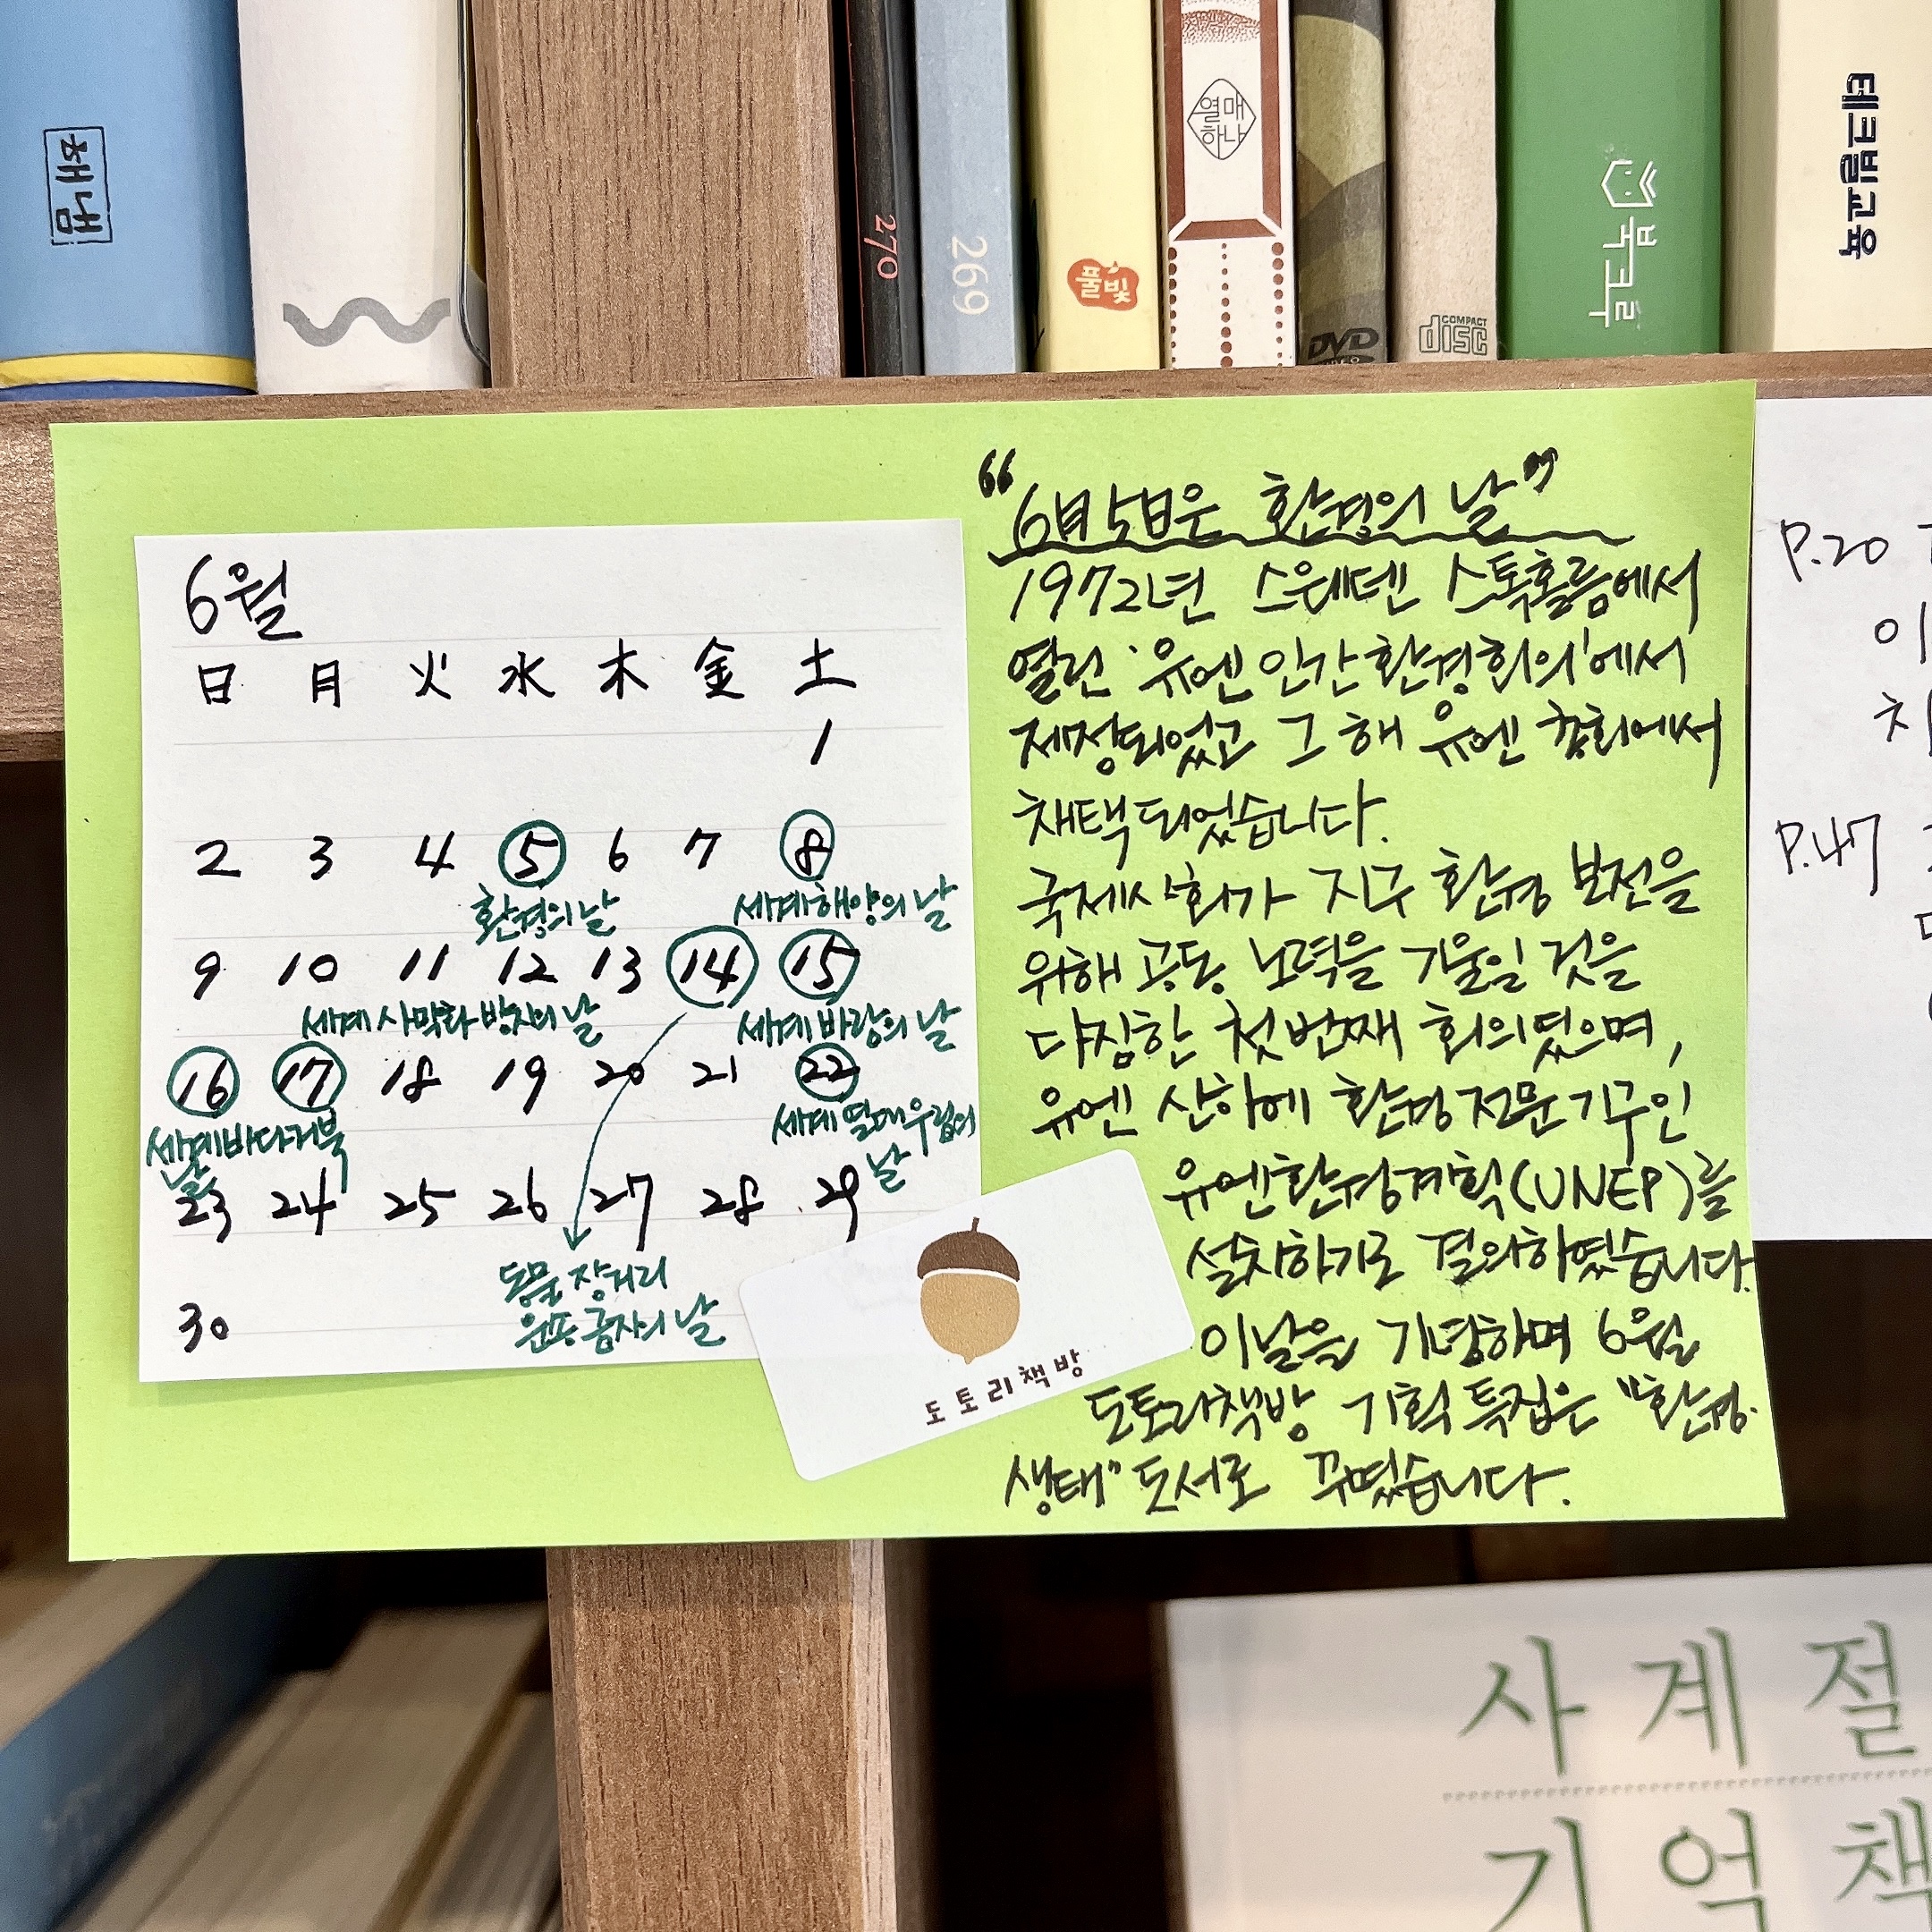 해냄
270
269
풀빛
열매
하나
DVD
COMPACT
disc
북크루
테크빌교육
6월
日 月 火 水 木 金 土
1
2 3 4 5 6 7 8
환경의 날
세계 해양의 날
9 10 11 12 13 14 15
세계 사막화 방지의 날
세계 바람의 날
16 17 18 19 20 21 22
세계 바다거북
날
세계 열대우림의
날
23 24 25 26 27 28 29
동물 장거리
운송 금지의 날
30
도토리책방
“6월 5일은 환경의 날”
1972년 스웨덴 스톡홀름에서
열린 '유엔인간환경회의'에서
제정되었고 그 해 유엔 총회에서
채택되었습니다.
국제사회가 지구 환경 보전을
위해 공동 노력을 기울일 것을
다짐한 첫 번째 회의였으며,
유엔 산하에 환경전문기구인
유엔환경계획(UNEP)를
설치하기로 결의하였습니다.
이날을 기념하며 6월
도토리책방 기획 특집은 "환경·
생태" 도서로 꾸몄습니다.
P.20
P.47
사계절
기억책